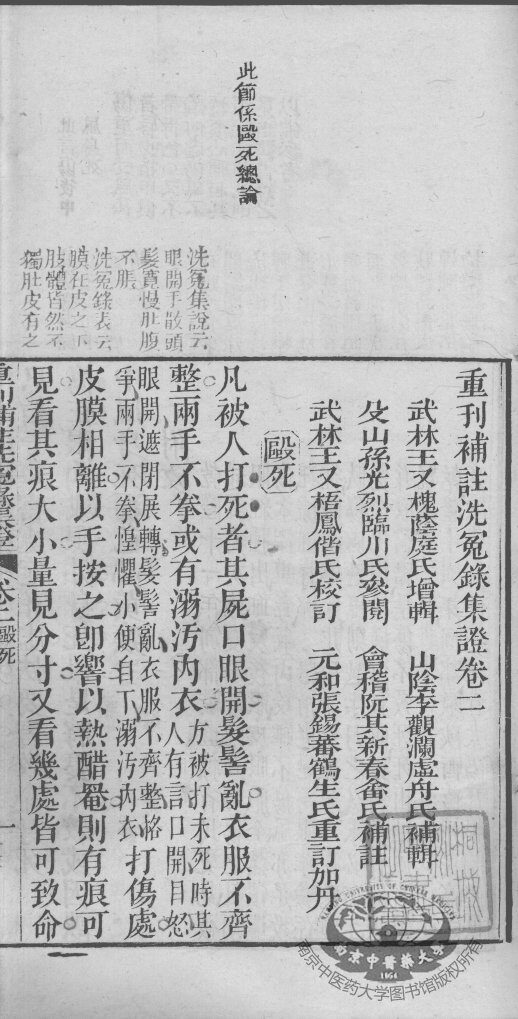 此節係毆死總論
洗冤集說云
眼開手散頭
髮寬慢肚腹
不脹
洗冤錄表云
膜在皮之下
肢體皆然不
獨肚皮有之
重刊補註洗冤錄集證卷二
武林王又槐蔭庭氏增輯 山陰李觀瀾虛舟氏補輯
孫光烈臨川氏參閱 會稽阮其新春畬氏補註
武林王又梧鳳偕氏校訂 元和張錫蕃鶴生氏重訂加丹
毆死
凡被人打死者其屍口眼開髮髻亂衣服不齊
整兩手不拳或有溺汚內衣
方被打未死時其
人有言口開目怒
眼開遮閉展轉髮髻亂衣服不齊整
爭兩手不拳惶懼小便自下溺汚內衣
打傷處
皮膜相離以手按之卽響以熱醋罨則有痕可
見看其痕大小量見分寸又看幾處皆可致命
重刊補註洗冤錄集證
卷二毆死
一
南京中醫藥大學
NANJING UNIVERSITY OF CHINESE MEDICINE
1954
南京中医药大学图书馆版权所有